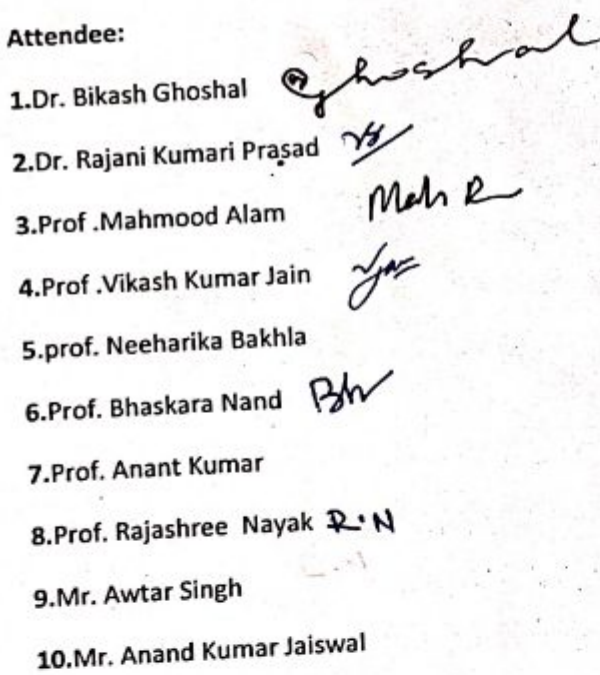 Attendee:
1.Dr. Bikash Ghoshal Ghoshal
2.Dr. Rajani Kumari Prasad
3.Prof .Mahmood Alam
4.Prof .Vikash Kumar Jain
5.prof. Neeharika Bakhla
6.Prof. Bhaskara Nand
7.Prof. Anant Kumar
8.Prof. Rajashree Nayak R.N
9.Mr. Awtar Singh
10.Mr. Anand Kumar Jaiswal